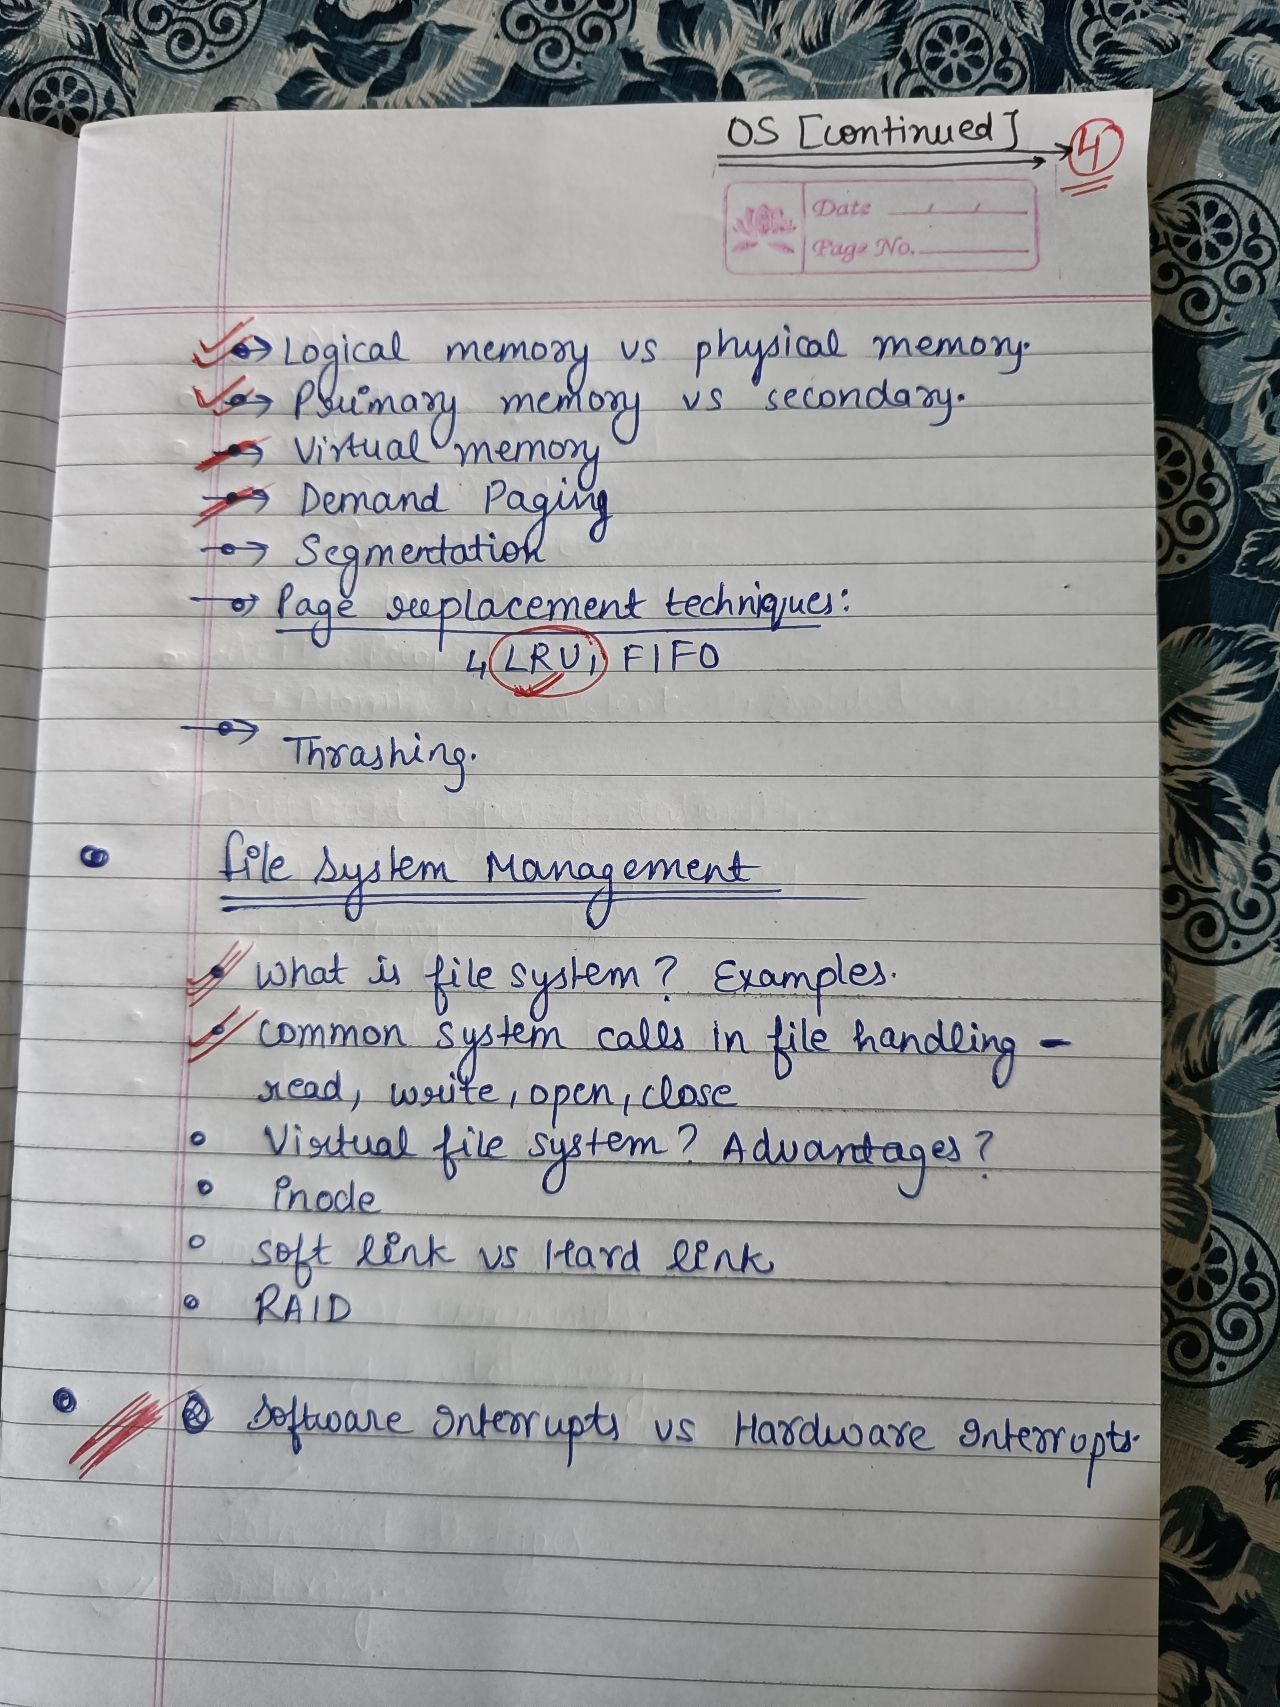 OS [continued] → 4
Date
Page No.
→ Logical memory vs physical memory.
→ Primary memory vs secondary.
→ Virtual memory
→ Demand Paging
→ Segmentation
→ Page replacement techniques:
↳ LRU, FIFO
→ Thrashing.
• File System Management
• What is file system? Examples.
• Common system calls in file handling -
read, write, open, close
• Virtual file system? Advantages?
• inode
• Soft link vs Hard link
• RAID
• Software Interrupts vs Hardware Interrupts.